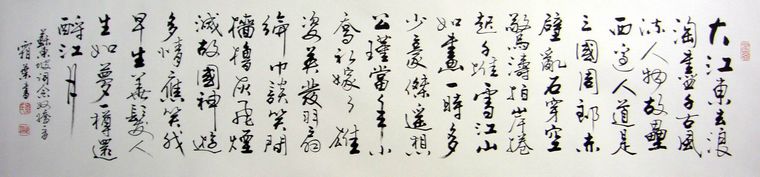 大江東去浪
淘盡千古風
流人物故壘
西邊人道是
三國周郎赤
壁亂石穿空
驚濤拍岸捲
起千堆雪江山
如畫一時多
少豪傑遙想
公瑾當年小
喬初嫁了雄
姿英發羽扇
綸巾談笑間
檣櫓灰飛煙
滅故國神遊
多情應笑我
早生華髮人
生如夢一樽還
酹江月
蘇東坡詞